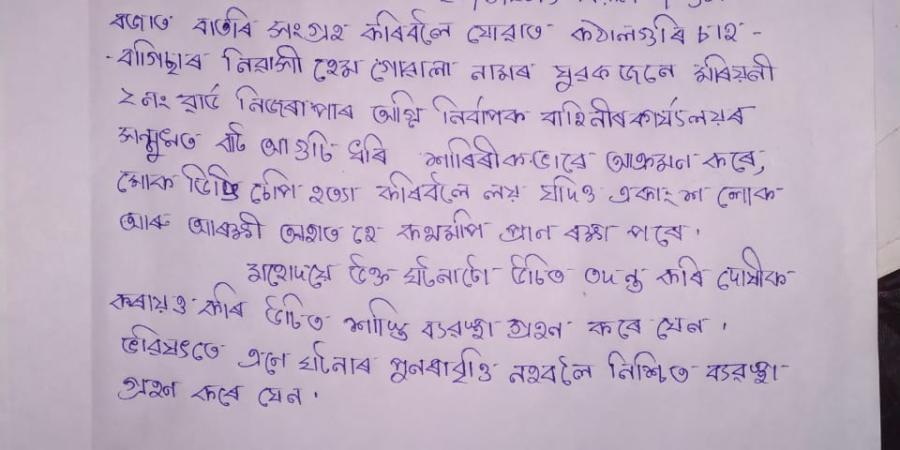 ৰজাত বাতৰি সংগ্ৰহ কৰিবলৈ যোৱাত কঠালগুৰি চাহ -
- বাগিছাৰ নিৱাসী হেম গোৱালা নামৰ যুৱক জনে মৰিয়নী
২ নং ৱাৰ্ড নিজৰাপাৰ অগ্নি নিৰ্বাপক বাহিনীৰ কাৰ্যালয়ৰ
সন্মুখত ৰাট আগুচি ধৰি শাৰিৰীক ভাৱে আক্ৰমন কৰে,
মোক ডিঙি চেপি হত্যা কৰিবলৈ লয় যদিও একাংশ লোক
আৰু আৰক্ষী অহাত হে কথমপি প্ৰান ৰক্ষা পৰে ।
মহোদয়ে উক্ত ঘটনাটো উচিত তদন্ত কৰি দোষীক
কৰায়ত্ত কৰি উচিত শাস্তি ব্যৱস্থা গ্ৰহন কৰে যেন ।
ভৱিষ্যতে এনে ঘটনাৰ পুনৰাবৃত্তি নহবলৈ নিশ্চিত ব্যৱস্থা
গ্ৰহন কৰে যেন ।